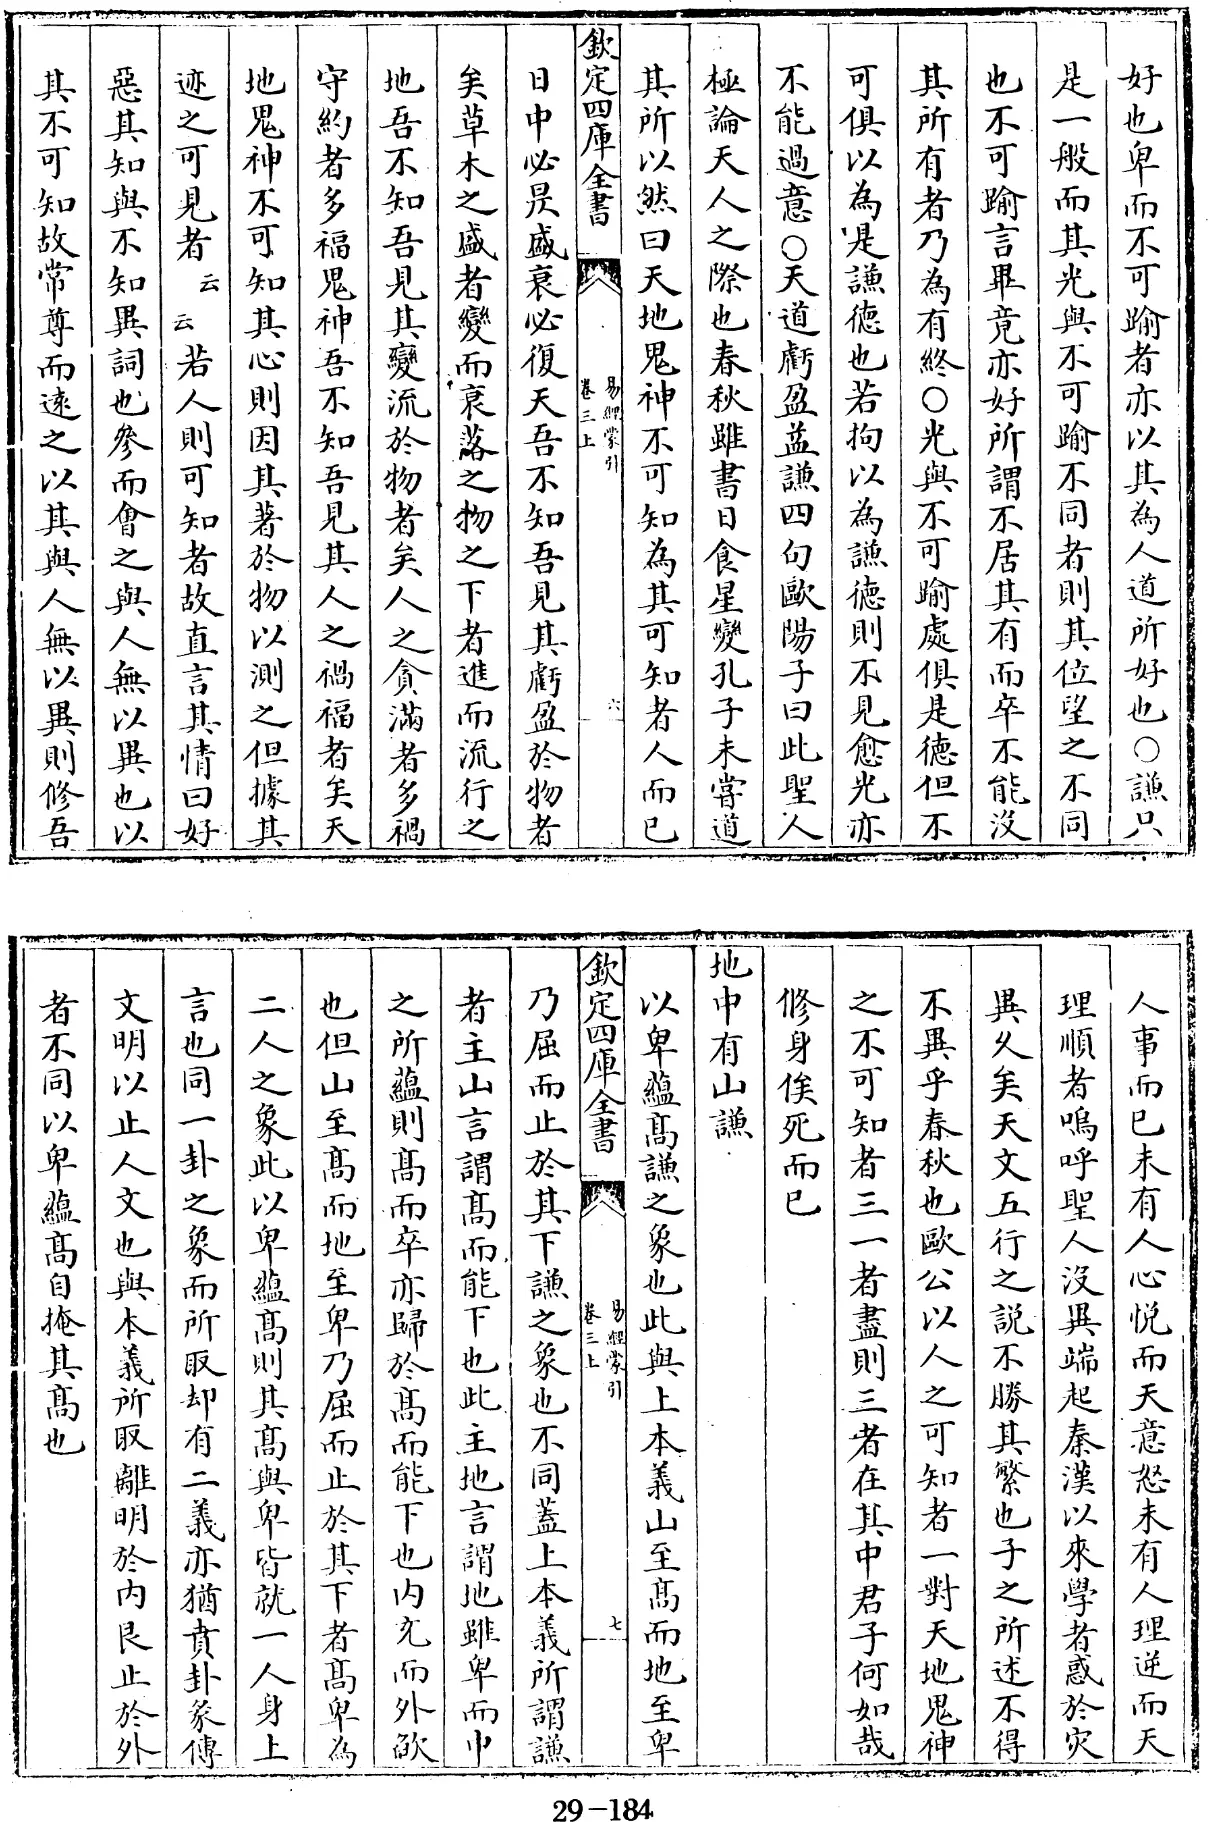 好也卑而不可踰者亦以其為人道所好也○謙只
是一般而其光與不可踰不同者則其位望之不同
也不可踰言畢竟亦好所謂不居其有而卒不能沒
其所有者乃為有終○光與不可踰處俱是德但不
可俱以為是謙德也若拘以為謙德則不見愈光亦
不能過意○天道虧盈益謙四句歐陽子曰此聖人
極論天人之際也春秋雖書日食星變孔子未嘗道
其所以然曰天地鬼神不可知為其可知者人而已
欽定四庫全書
易經蒙引
卷三上
六
日中必昃盛衰必復天吾不知吾見其虧盈於物者
矣草木之盛者變而衰落之物之下者進而流行之
地吾不知吾見其變流於物者矣人之貪滿者多禍
守約者多福鬼神吾不知吾見其人之禍福者矣天
地鬼神不可知其心則因其著於物以測之但據其
迹之可見者云云若人則可知者故直言其情曰好
惡其知與不知異詞也參而會之與人無以異也以
其不可知故常尊而遠之以其與人無以異則修吾
人事而已未有人心悅而天意怒未有人理逆而天
理順者嗚呼聖人沒異端起秦漢以來學者惑於災
異久矣天文五行之說不勝其繁也予之所述不得
不異乎春秋也歐公以人之可知者一對天地鬼神
之不可知者三一者盡則三者在其中君子何如哉
修身俟死而已
地中有山謙
以卑蘊髙謙之象也此與上本義山至髙而地至卑
欽定四庫全書
易經蒙引
卷三上
七
乃屈而止於其下謙之象也不同蓋上本義所謂謙
者主山言謂髙而能下也此主地言謂地雖卑而中
之所蘊則髙而卒亦歸於髙而能下也内充而外歛
也但山至髙而地至卑乃屈而止於其下者髙卑為
二人之象此以卑蘊髙則其髙與卑皆就一人身上
言也同一卦之象而所取却有二義亦猶賁卦彖傳
文明以止人文也與本義所取離明於内艮止於外
者不同以卑蘊髙自掩其髙也
29-184